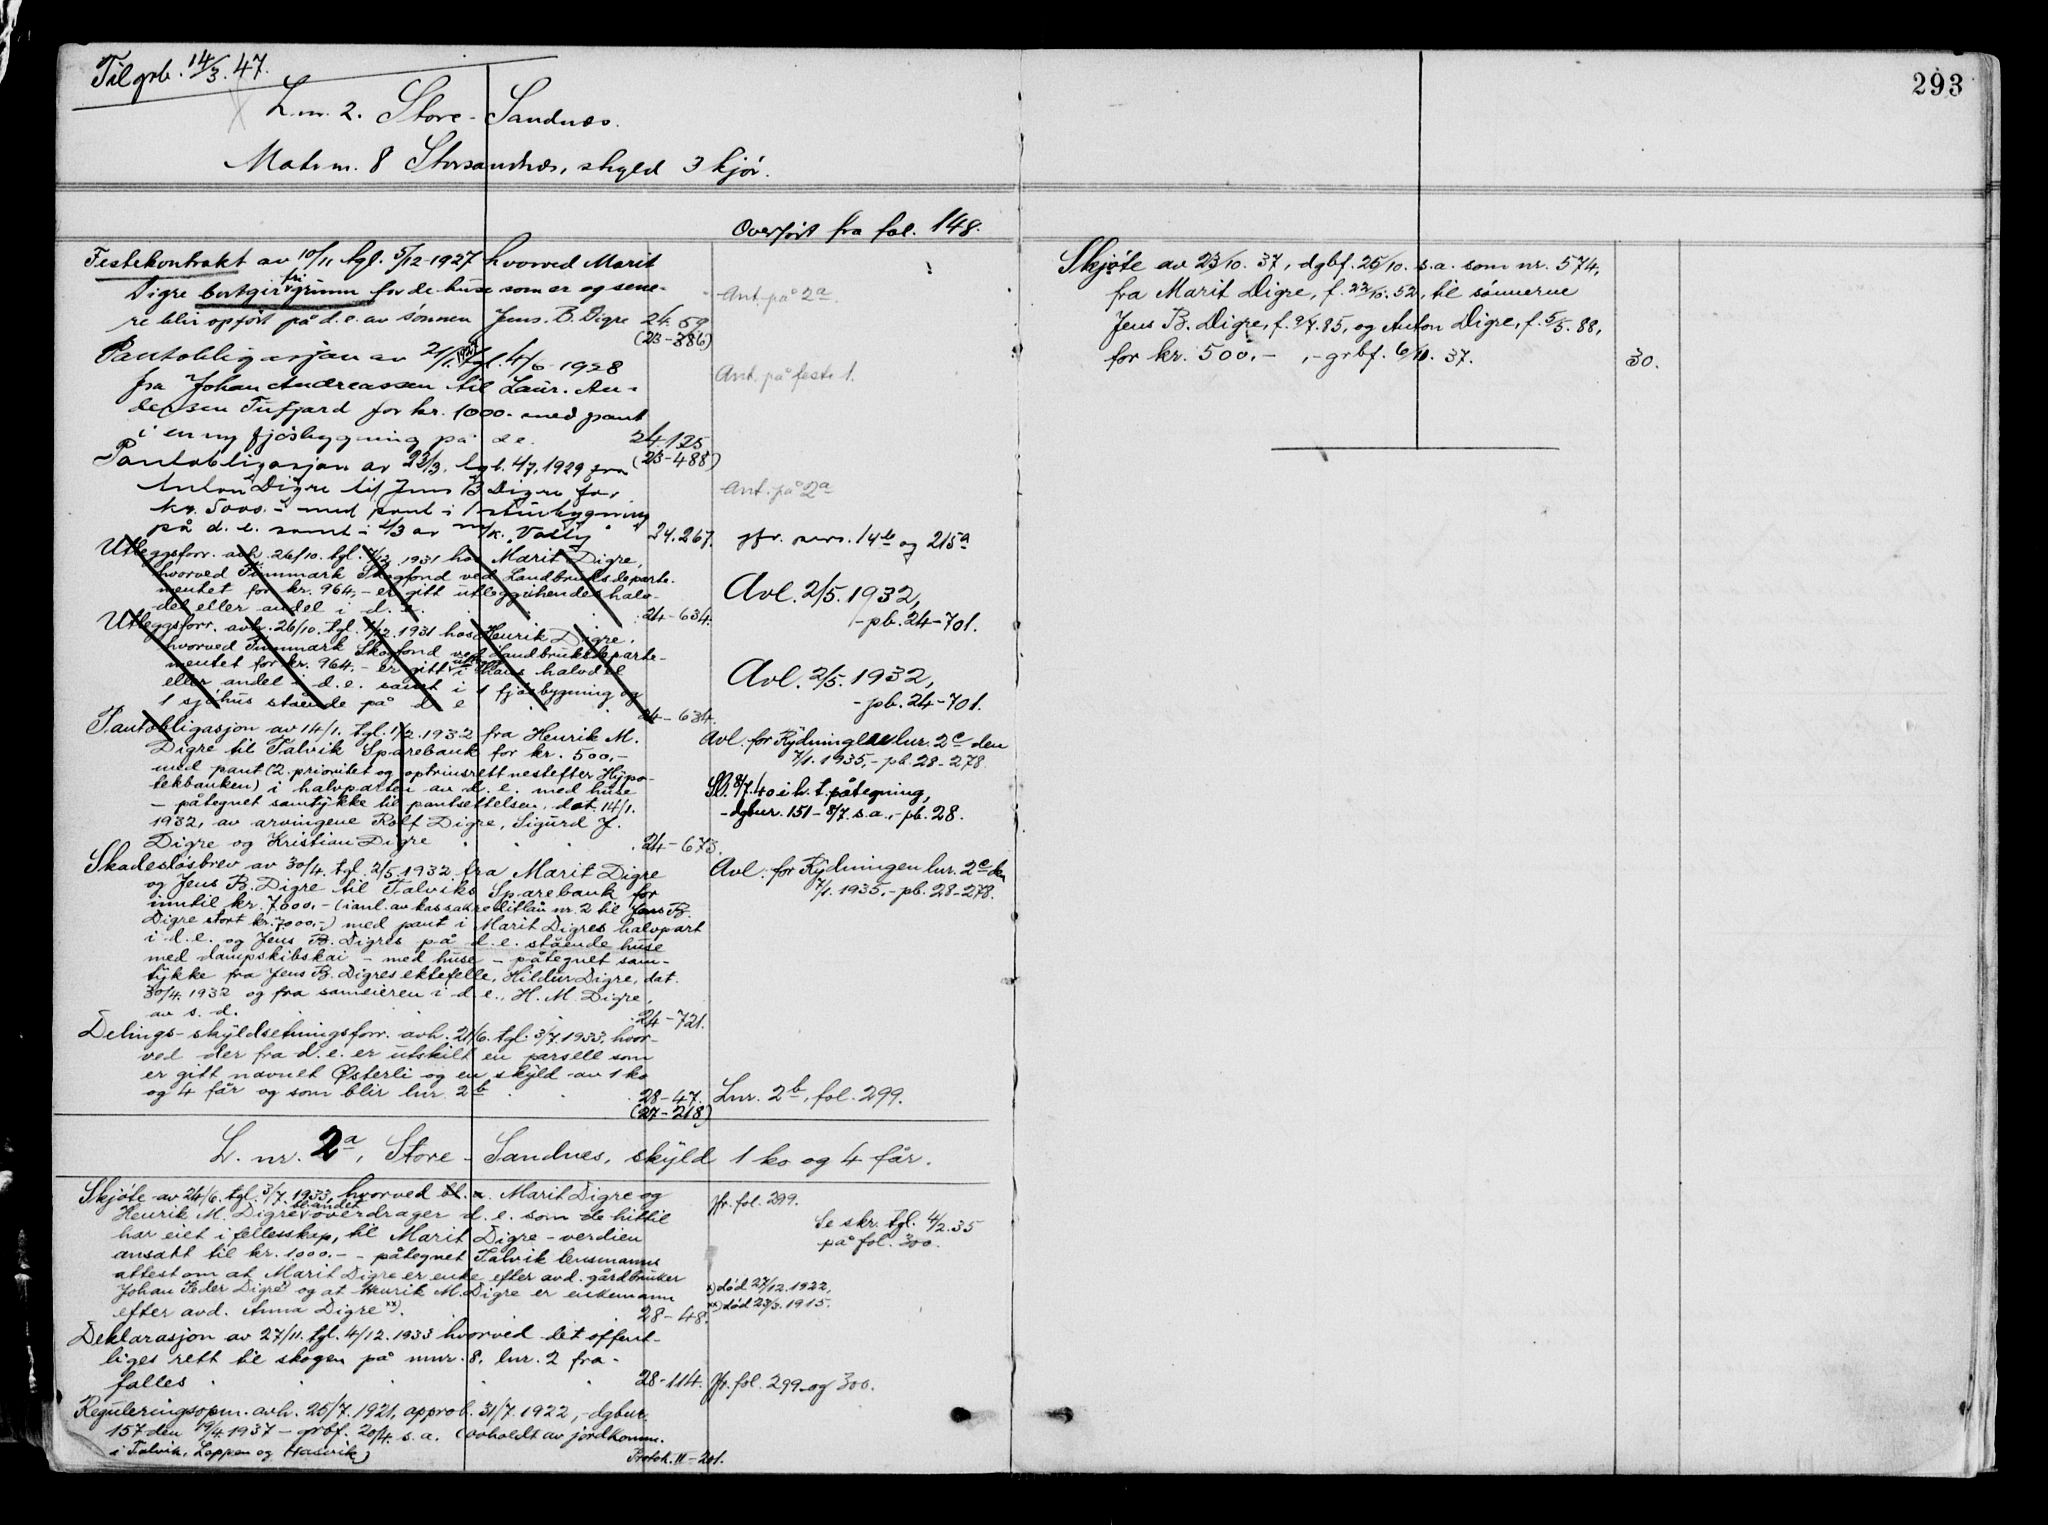 Til grb. 14/3. 47.
L. nr. 2. Store-Sandnes.
Matr. nr. 8 Storsandnes, skyld 3 kjør.
Overført fra fol. 148.
Festekontrakt av 10/11 tgl. 5/12-1927 hvorved Marit
Digre bortgir fri grunn for de huse som er og sene-
re blir opført på d.e. av sønnen Jens. B. Digre 24. 59
(23-386)
Ant. på 2a.
Pantobligasjon av 21/1. 1927 tgl. 4/6 1928
fra Johan Andreassen til Laur. An-
dersen Tufjord for kr. 1000.- med pant
i en ny fjøsbygning på d e. 24.125
(23-488)
Ant. på feste 1.
Pantobligasjon av 22/3. tgl. 4/7. 1929 fra
Anton Digre til Jens B Digre for
kr. 5000.- med pant i 1 stuebygning
på d. e. samt i 1/3 av m/k. "Valby" 24.267.
Ant. på 2a
jfr. nrs. 14b og 215a
Utleggsforr. avh. 26/10. tgl. 1/12. 1931 hos Marit Digre,
hvorved Finnmark Skogfond ved Landbruksdeparte-
mentet for kr. 964,- er gitt utlegg i hendes halv-
del eller andel i d. e. 24-634.
Avl. 2/5. 1932,
-pb. 24-701.
Utleggsforr. avh. 26/10. tgl. 1/12. 1931 hos Henrik Digre,
hvorved Finnmark Skogfond ved Landbruksdeparte-
mentet for kr. 964,- er gitt utl. i hans halvdel
eller andel i d. e. samt i 1 fjøsbygning og
1 sjøhus stående på d e 24-634.
Avl. 2/5. 1932,
-pb. 24-701.
Pantobligasjon av 14/1. tgl. 1/2. 1932 fra Henrik M.
Digre til Talvik Sparebank for kr. 500,-
med pant (2. prioritet og optrinsrett nestefter Hypo-
tekbanken) i halvparten av d. e. med huse
- påtegnet samtykke til pantsettelsen, dat. 14/1.
1932, av arvingene Rolf Digre, Sigurd J.
Digre og Kristian Digre 24-673.
Avl. for Rydningen lnr. 2c den
7/1. 1935,- pb. 28-278.
Sl. 8/7. 40 i h. t. påtegning,
-dgbnr. 151-8/7. s.a.,-pb. 28.
Skadesløsbrev av 30/4. tgl. 2/5 1932 fra Marit Digre
og Jens B. Digre til Talviks Sparebank for
inntil kr. 7000,- (i anl. av kassakreditlån nr. 2 til Jens B.
Digre stort kr. 7000,-) med pant i Marit Digres halvpart
i d. e. og Jens B. Digres på d. e. stående huse
med dampskibskai - med huse - påtegnet sam-
tykke fra Jens B. Digres ektefelle, Hildur Digre, dat.
30/4. 1932 og fra sameieren i d. e., H. M. Digre,
av s. d. 24-721.
Avl. for Rydningen lnr. 2c den
7/1. 1935,-pb. 28-278.
Delings-skyldsetningsforr. avh. 21/6. tgl. 3/7. 1933, hvor-
ved der fra d. e. er utskilt en parsell som
er gitt navnet Østerli og en skyld av 1 ko
og 4 får og som blir lnr. 2b 28-47.
(27-218)
Lnr. 2b, fol. 299.
L. nr. 2a, Store-Sandnes, skyld 1 ko og 4 får.
Skjøte av 24/6. tgl. 3/7. 1933, hvorved bl. a. Marit Digre og
Henrik M. Digre bl. andet overdrager d. e. som de hittil
har eiet i fellesskap, til Marit Digre - verdien
ansatt til kr. 1000.- - påtegnet Talvik lensmanns
attest om at Marit Digre er enke efter avd. gårdbruker
Johan Peder Digre x) og at Henrik M. Digre er enkemann
efter avd. Anna Digre xx). 28-48.
jfr. fol. 299.
Se skr. tgl. 4/2. 35
på fol. 300.
x) død 27/12. 1922,
xx) død 23/3. 1915.
Deklarasjon av 27/11. tgl. 4/12. 1933 hvorved det offent-
liges rett til skogen på mnr. 8, lnr. 2 fra-
falles 28-114. jfr. fol. 299 og 300.
Reguleringsopm. avh. 25/7. 1921, approb. 31/7. 1922,-dgbnr.
157 den 19/4 1937 - grbf. 20/4. s. a. (avholdt av jordkomm.
i Talvik, Loppen og Hasvik) Protok. II-201.
293
Skjøte av 23/10. 37, dgbf. 25/10. s.a. som nr. 574,
fra Marit Digre, f. 22/10. 52, til sønnerne
Jens B. Digre, f. 9/7. 85, og Anton Digre, f. 5/5. 88,
for kr. 500.- ,-grbf. 6/11. 37. 30.